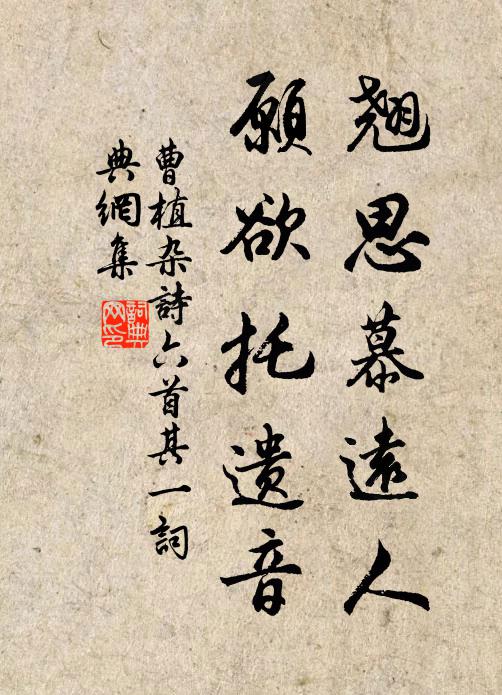 翹思慕遠人
願欲托遺音
曹植杂詩六首其一詞
典網集
詞典
网印